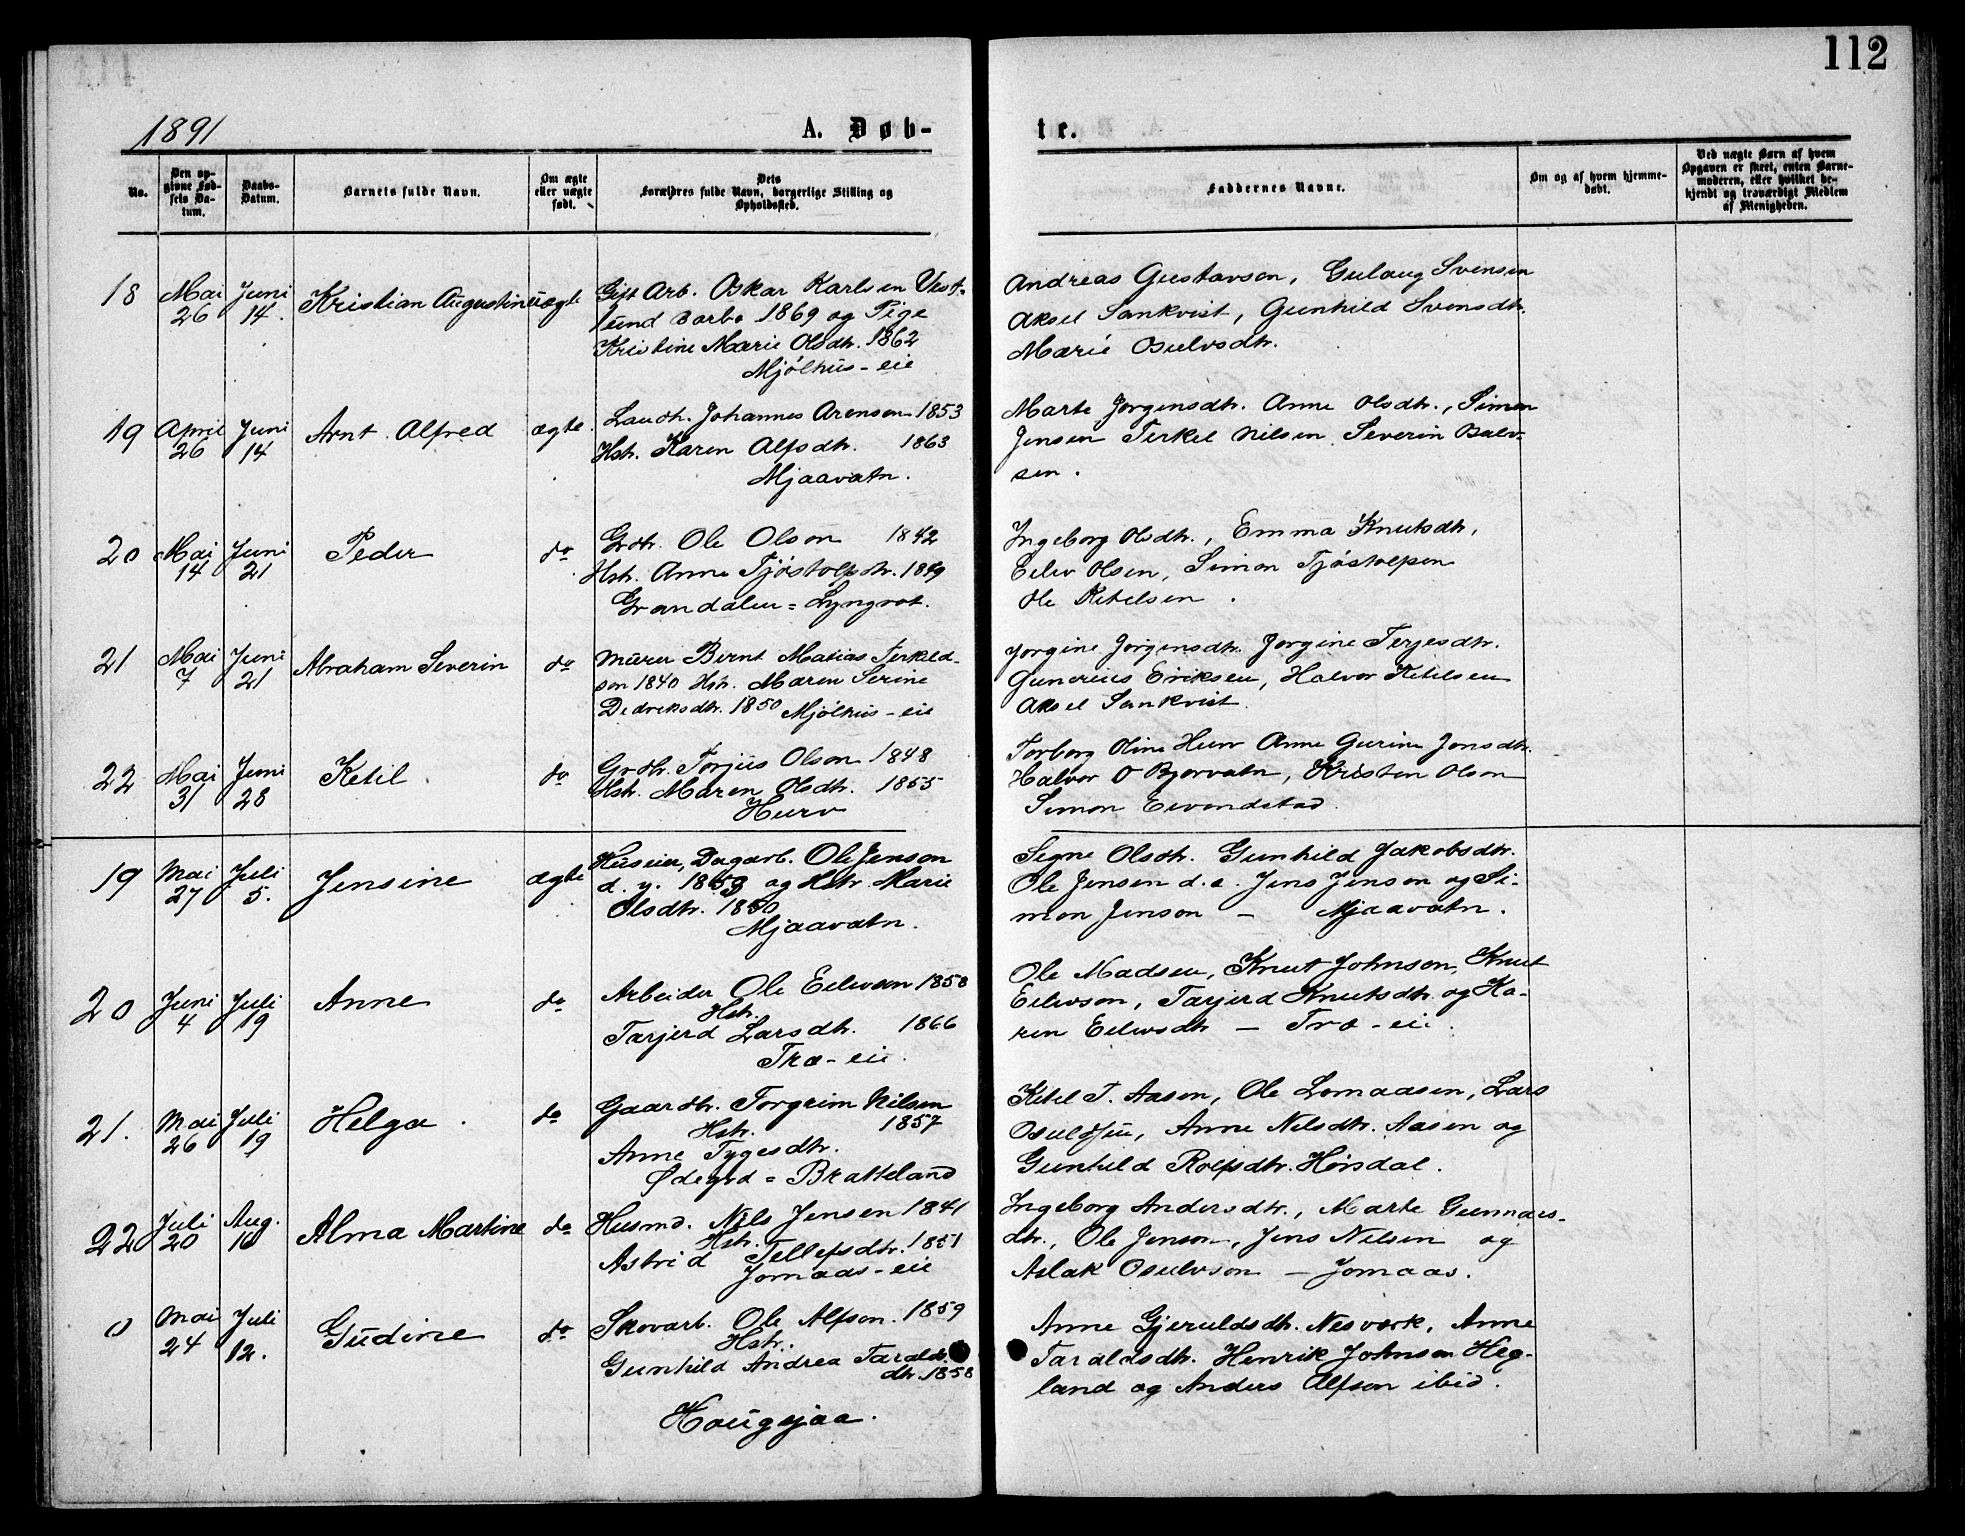 112
1891
A. Døb-
te.
No.
Den op-
givne Fød-
sels Da-
tum.
Daabs-
Datum.
Barnets fulde Navn.
Om ægte
eller uægte
født.
Dets
Forældres fulde Navn, borgerlige Stilling og
Opholdssted.
Faddernes Navne.
Om og af hvem hjemme-
døbt.
Ved uægte Børn af hvem
Opgaven er skeet, enten Barne-
moderen, eller hvilket be-
kjendt og troværdigt Medlem
af Menigheden.
18 Mai 26 Juni 14. Kristian Augustin uægte
Gift Arb. Oskar Karlsen Vest-
lund Barbo 1869 og Pige
Kristine Marie Olsdtr. 1862
Mjølhus-eie
Andreas Gustavson, Gulaug Svensen
Aksel Sankvist, Gunhild Svensdtr.
Marie Osulvsdtr.
19 April 26 Juni 14 Arnt Alfred ægte
Gaardbr. Johannes Arenson 1853
Hstr. Karen Alfsdtr. 1863
Mjaavatn.
Marte Jørgensdtr. Anne Olsdtr., Simon
Jensen Terkel Nilsen Severin Salv-
sen.
20 Mai 14 Juni 21 Peder do
Grdbr. Ole Olson 1842
Hstr. Anne Tjøstolfsdtr. 1849
Grandalen = Lyngrot.
Ingeborg Olsdtr., Emma Knutsdtr,
Eilev Olsen, Simon Tjøstolfsen
Ole Ketelsen.
21 Mai 7 Juni 21 Abraham Severin do
Murer Bernt Matias Terkeld-
son 1840 Hstr. Maren Serine
Dedreksdtr. 1850 Mjølhus-eie
Jørgine Jørgensdtr. Jørgine Terjesdtr.
Gunerius Eriksen, Halvor Ketelsen
Aksel Sankvist.
22 Mai 31 Juni 28 Ketil do
Grdbr. Torjus Olson 1848
Hstr. Maren Olsdtr. 1855
Hurv
Torborg Oline Hurv Anne Gurine Jonsdtr.
Halvor O Bjorvatn, Kristen Olson
Simon Eivendstad.
19 Mai 27 Juli 5. Jensine ægte
Huseier, Dagarb. Ole Jenson
d. y. 1853 og Hstr. Marie
Olsdtr. 1850
Mjaavatn.
Signe Olsdtr. Gunhild Jakobsdtr.
Ole Jensen d. e. Jens Jenson og Si-
mon Jenson - Mjaavatn.
20 Juni 4 Juli 19 Anne do
Arbeider Ole Eilevsen 1858
Hstr.
Tarjerd Larsdtr. 1866
Træ-eie.
Ole Madsen, Knut Johnson, Knut
Eilevson, Tarjerd Knutsdtr. og Ka-
ren Eilevsdtr - Træ-eie.
21. Mai 26 Juli 19 Helga. do
Gaardbr. Torgrim Nilsen
Hstr. 1857
Anne Tygesdtr.
Ødegrd = Bratteland
Ketel T. Aasen, Ole Lomaasen, Lars
Osuldsen, Anne Nilsdtr. Aasen og
Gunhild Rolfsdtr. Hørsdal.
22 Juli 20 Aug. 16 Alma Martine do
Husmd. Nils Jensen 1841
Hstr.
Astrid Tellefsdtr. 1851
Jomaas-eie
Ingeborg Andersdtr., Marte Gunnars-
dtr., Ole Jenson, Jens Nilsen og
Aslak Osulvson - Jomaas.
0 Mai 24 Juli 12. Gudine do
Skovarb. Ole Alfson. 1859
Hstr.
Gunhild Andrea Taralds-
dtr. 1858
Hougsjaa.
Anne Gjeruldsdtr. Nesverk, Anne
Taraldsdtr. Henrik Johnson Heg-
land og Anders Alfson ibid.